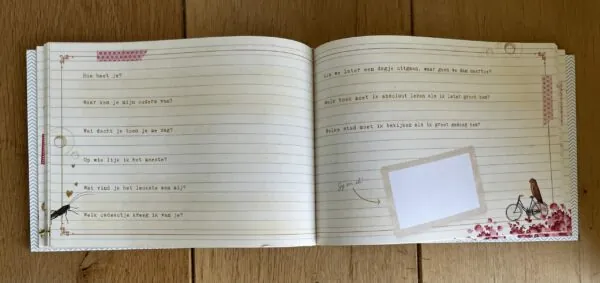 Hoe heet je?
Waar ken je mijn ouders van?
Wat dacht je toen je me zag?
Op wie lijk ik het meeste?
Wat vind je het leukste aan mij?
Welk cadeautje kreeg ik van je?
Als we later een dagje uitgaan, waar gaan we dan naartoe?
Welk boek moet ik absoluut lezen als ik later groot ben?
Welke stad moet ik bekijken als ik groot genoeg ben?